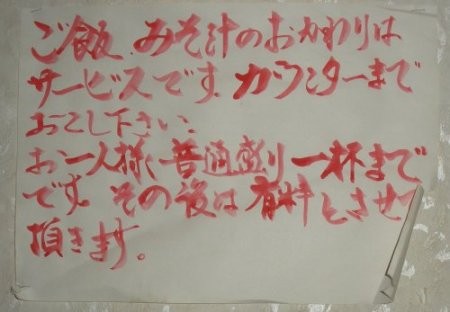 ご飯、みそ汁のおかわりは
サービスです。カウンターまで
おこし下さい。
お一人様、普通盛り一杯まで
です。その後は有料とさせて
頂きます。